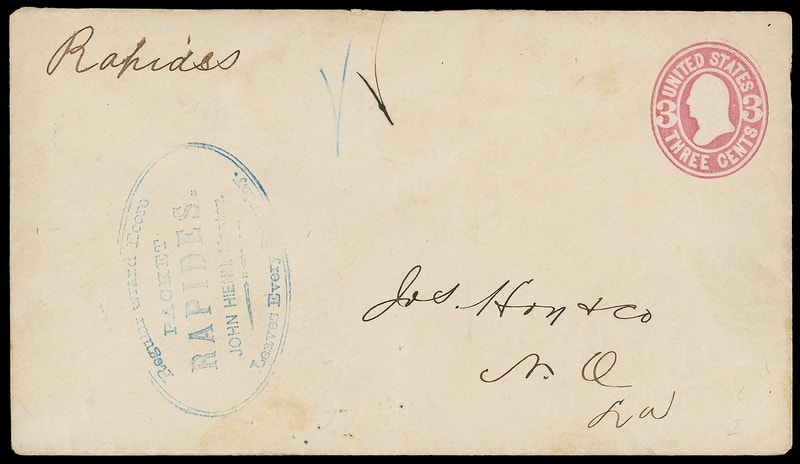 Rapides
UNITED STATES
3 3
THREE CENTS
Regular Grand Ecore
PACKET
RAPIDES.
JOHN HIENN, Master.
Leaves Every
Jos. Hoy & Co
N. O
La